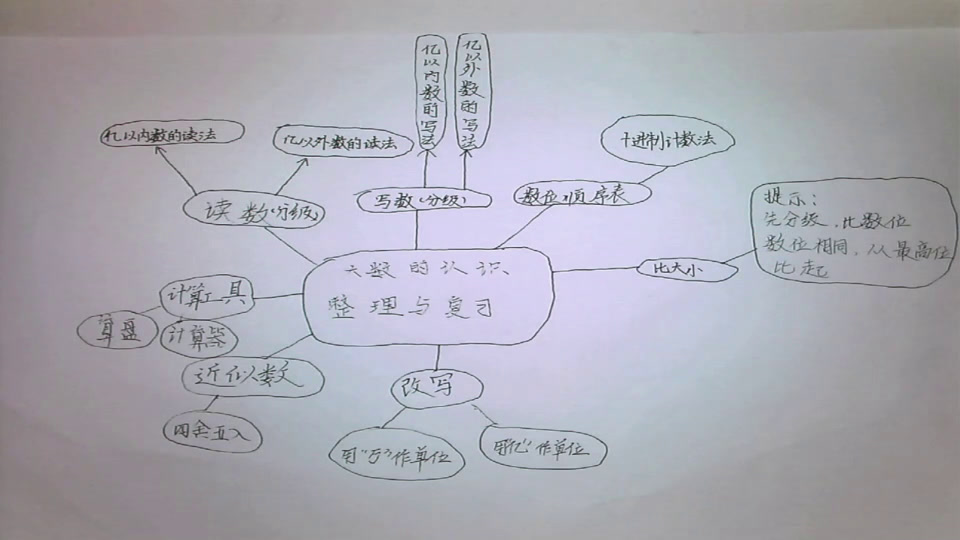 亿以内数的写法
亿以外数的写法
亿以内数的读法
亿以外数的读法
十进制计数法
读数(分级)
写数(分级)
数位顺序表
提示:
先分级,比数位
数位相同,从最高位
比起
比大小
大数的认识
整理与复习
计算工具
算盘
计算器
近似数
四舍五入
改写
用“万”作单位
用“亿”作单位